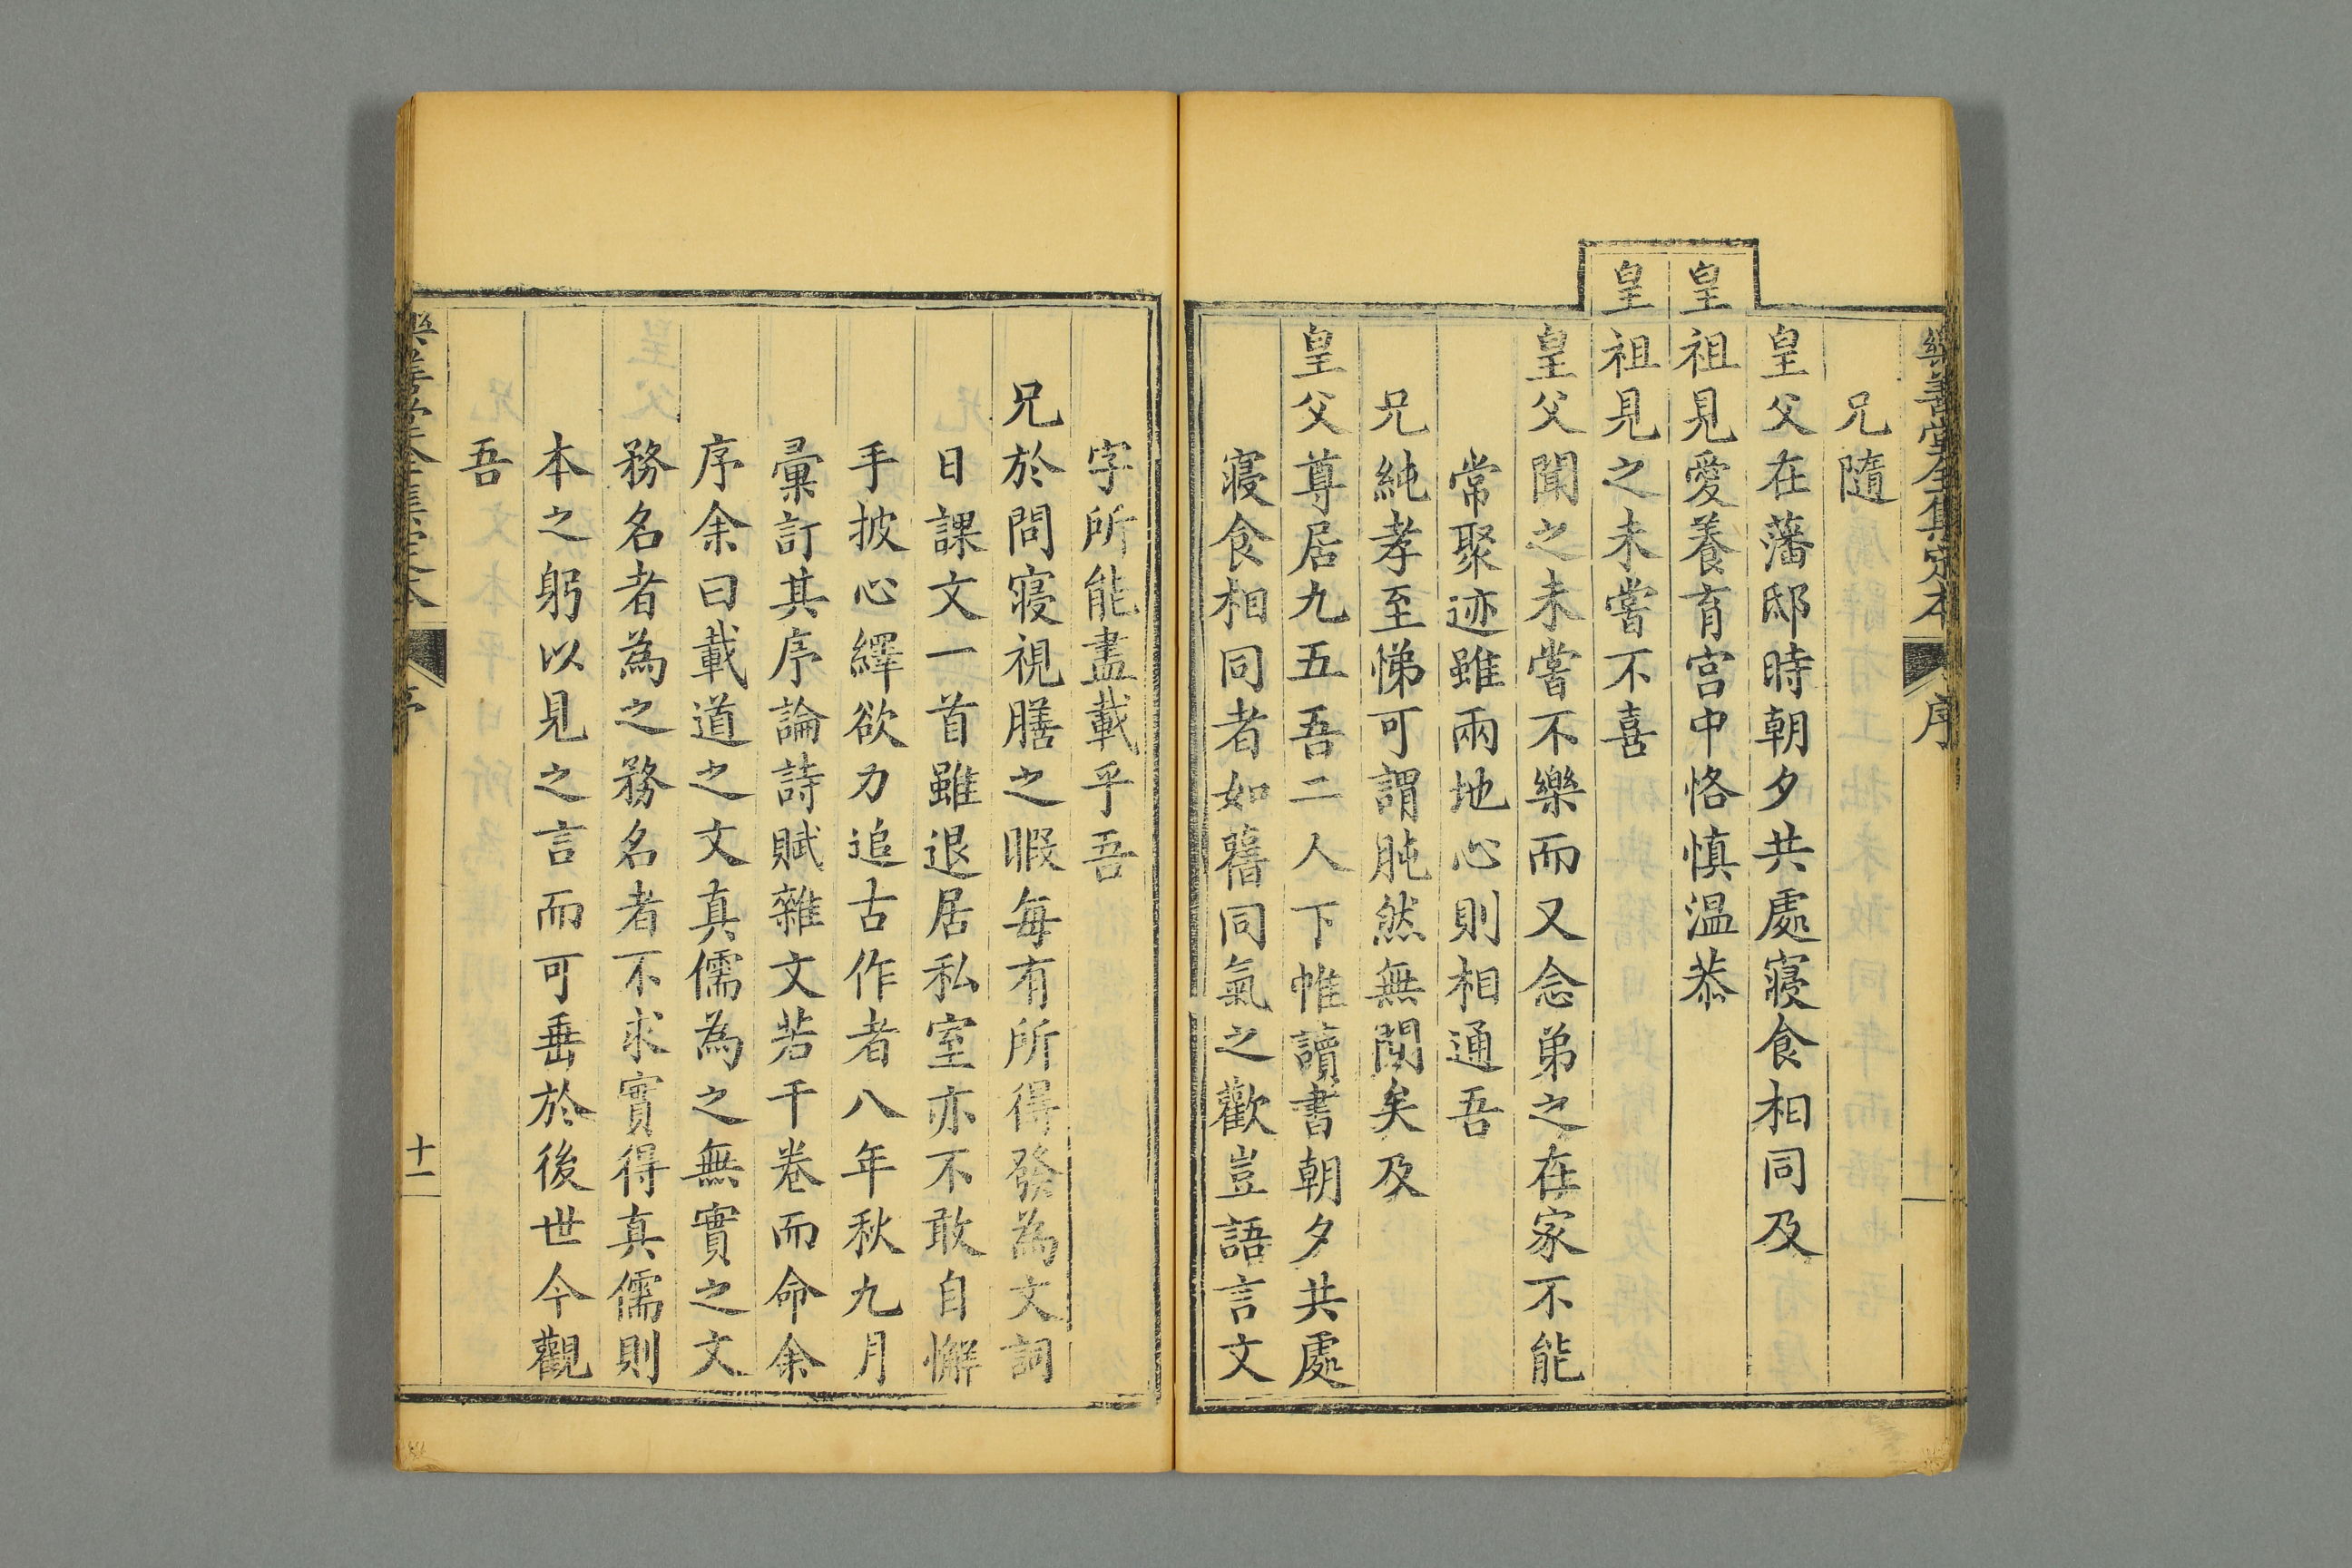 樂善堂全集定本 序
兄隨
皇父在藩邸時朝夕共處寢食相同及
皇祖見愛養育宮中恪慎温恭
皇祖見之未嘗不喜
皇父聞之未嘗不樂而又念弟之在家不能
常聚迹雖兩地心則相通吾
兄純孝至悌可謂肫然無間矣及
皇父尊居九五吾二人下帷讀書朝夕共處
寢食相同者如舊同氣之歡豈語言文
字所能盡載乎吾
兄於問寢視膳之暇每有所得發為文詞
日課文一首雖退居私室亦不敢自懈
手披心繹欲力追古作者八年秋九月
彙訂其序論詩賦雜文若干卷而命余
序余曰載道之文真儒為之無實之文
務名者為之務名者不求實得真儒則
本之躬以見之言而可垂於後世今觀
吾
樂善堂全集定本 序 十一